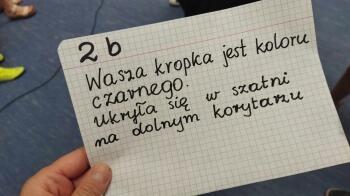 2b
Wasza kropka jest koloru
czarnego.
ukryła się w szatni
na dolnym korytarzu